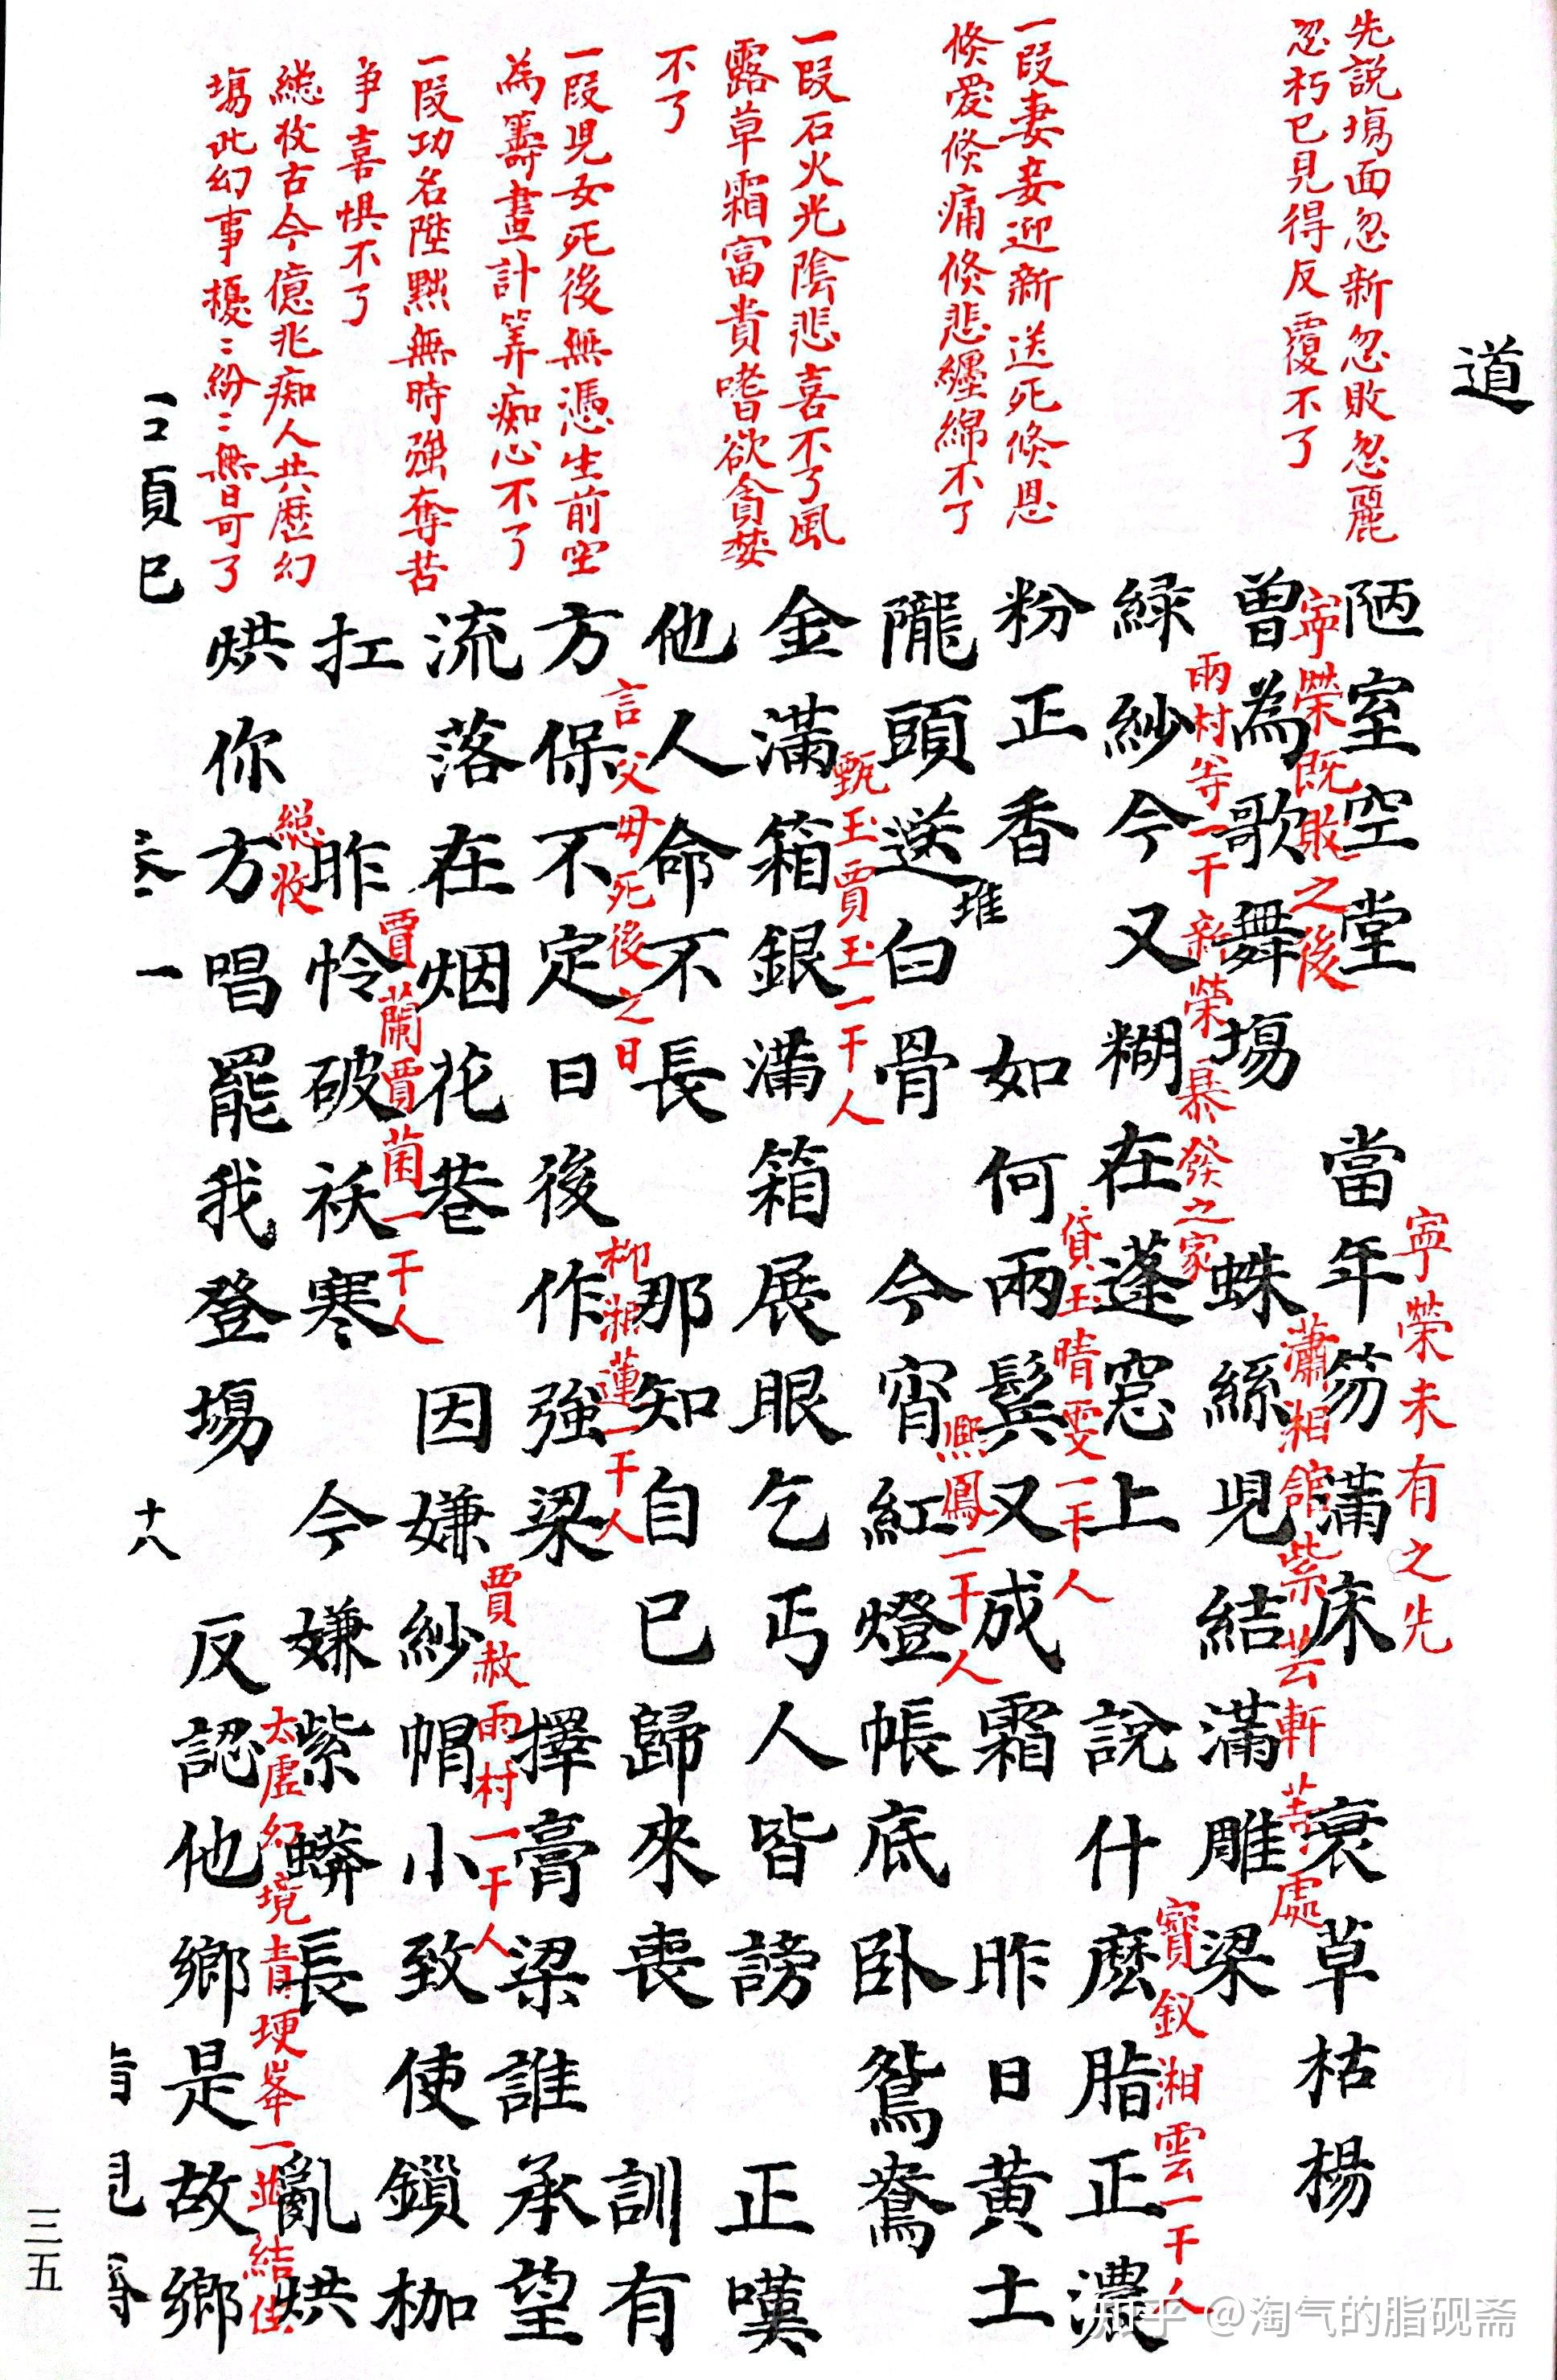 道
先説塲面忽新忽敗忽麗
忽朽已見得反覆不了
一段妻妾迎新送死倏恩
倏愛倏痛倏悲纒綿不了
一段石火光陰悲喜不了風
露草霜富貴嗜欲貪婪
不了
一段児女死後無憑生前空
為籌畫計筭痴心不了
一段功名陞黜無時強奪苦
争喜惧不了
緫收古今億兆痴人共歴幻
塲此幻事擾〻紛〻無日可了
陋室空堂 當年笏滿床 衰草枯楊
寧榮未有之先
寧榮既敗之後
曽為歌舞塲 蛛絲児結滿雕梁
瀟湘館紫芸軒等處
雨村等一干新榮暴發之家
緑紗今又糊在蓬窓上 說什麽脂正濃
寶釵湘雲一干人
粉正香 如何兩鬓又成霜 昨日黄土
貸玉晴雯一干人
隴頭送白骨 今宵紅燈帳底卧鴛鴦
堆
熙鳳一干人
金滿箱銀滿箱 展眼乞丐人皆謗 正嘆
甄玉賈玉一干人
他人命不長 那知自已歸來喪 訓有
方保不定日後作強梁 擇膏梁誰承望
言父母死後之日
柳湘蓮一干人
流落在烟花巷 因嫌紗帽小致使鎖枷
賈赦雨村一干人
扛 昨怜破袄寒 今嫌紫蟒長 亂烘
賈蘭賈菌一干人
緫收
烘你方唱罷我登塲 反認他鄉是故鄉
太虚幻境青埂峯一並結住
頁已
一
十八
三五
知乎 @淘气的脂砚斋